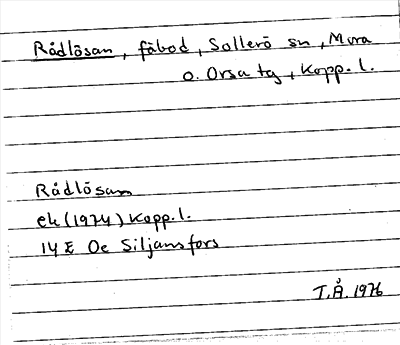 Rådlösan, fäbod, Sollerö sn, Mora
o. Orsa tg, Kopp. l.
Rådlösan
ek (1974) Kopp. l.
14 E Oe Siljansfors
T.Å. 1976